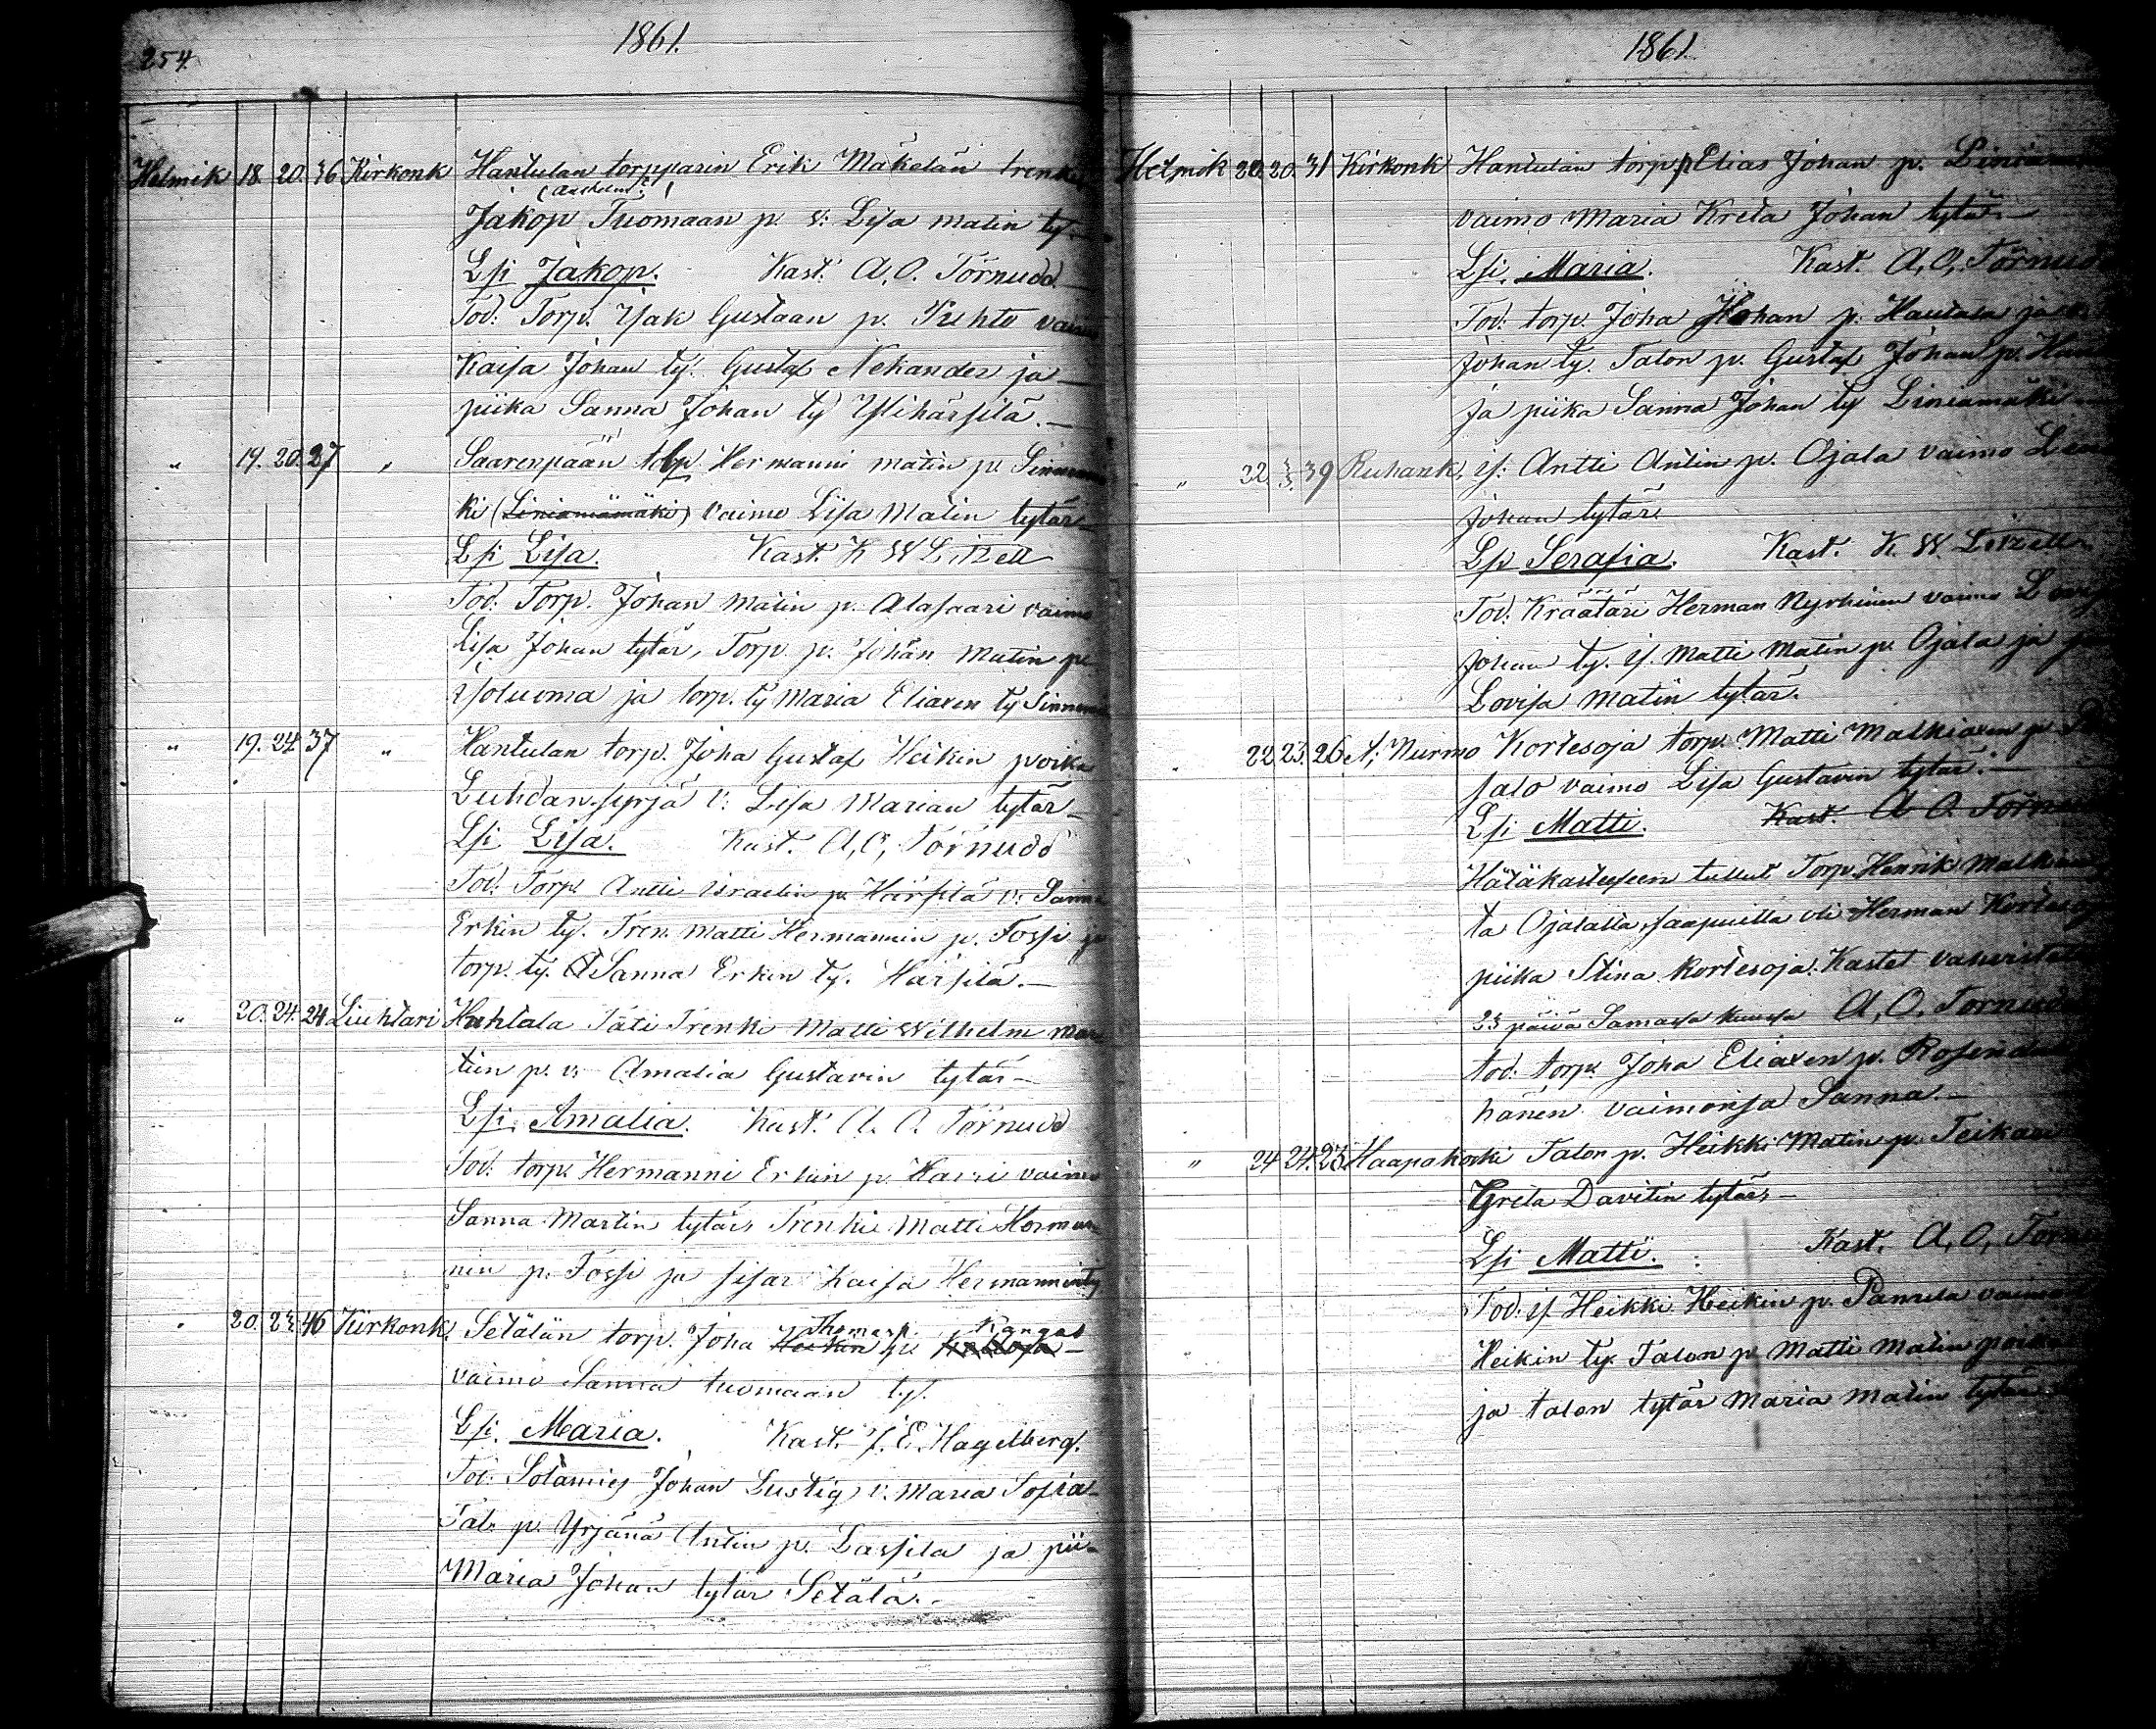 254
1861.
Helmik 18. 20. 36 Kirkonk Hantulan torpparin Erik Mäkelän trenki
Jakop Tuomaan p. v. Lisa Matin ty.
Lsi Jakop. Kast. A. O. Törnudd
Tod. Torp. Isak Gustaan p. vaimo
Kaisa Johan ty. Gustaf Nekander ja
piika Sanna Johan ty Ylihärsilä.
" 19. 20. 27 " Saarenpään torp. Hermanni Matin p.
ki (Liniamäki) vaimo Lisa Matin tytär
Lsi Lisa. Kast. K W Litzell
Tod. Torp. Johan Matin p. Alasaari vaimo
Lisa Johan tytär, Torp. p. Johan Matin p.
Isoluoma ja torp. ty Maria Eliaxen ty
" 19. 24. 37 " Hantulan torp. Joha Gustaf Heikin poika
Luhdansyrjä v. Lisa Marian tytär
Lsi Lisa. Kast. A, O, Törnudd
Tod. Torp. Antti Israelin p. Härsilä v. Sanna
Erkin ty. Tren. Matti Hermannin p. Fossi ja
torp. ty. Sanna Erkin ty. Härsilä.
" 20. 24. 24 Liuhtari Huhtala Täti Trenki Matti Wilhelm Mar
tin p. v. Amalia Gustavin tytär
Lsi. Amalia. Kast. A. O. Törnudd
Tod. torp. Hermanni Erkin p. Harri vaimo
Sanna Martin tytär, Trenki Matti Herman
nin p. Fossi ja sisar Kaisa Hermannin ty
" 20. 23. 46 Kirkonk. Setälän torp. Joha Heikin Thomas p. p. Kangas
vaimo Sanna tuomaan ty.
Lsi. Maria. Kast. J. E. Hagelberg.
Tod. Sotamies Johan Lustig v. Maria Sofia
Tal. p. Yrjänä Antin p. Lassila ja pii
Maria Johan tytär Setälä.
1861.
Helmik 20. 20. 31 Kirkonk Hantulan torp. p Elias Johan p.
vaimo Maria Kreta Johan tytär
Lsi. Maria. Kast. A, O, Törnudd
Tod. torp. Joha Johan p. Hautala ja v.
Johan ty. Talon p. Gustaf Johan p.
ja piika Sanna Johan ty Liniamäki
" 22 3/3. 39 Ruhank. is. Antti Antin p. Ojala vaimo
Johan tytär
Lsi Serafia. Kast. K. W. Litzell
Tod. Kräätäri Herman Nyrhinen vaimo
Johan ty. is. Matti Matin p. Ojala ja
Lovisa Matin tytär.
" 22 23. 26 A; Nurmo Kortesoja torp. Matti Malkiaxen p.
salo vaimo Lisa Gustavin tytär.
Lsi Matti. Kast. A O Törnudd
Hätäkasteeseen tullut Torp. Henrik
ta Ojatalla, saapuilla oli Herman
piika Stina Kortesoja. Kastet vahvistettu
23 päivä Samassa kuussa A, O. Törnudd
tod. torp. Joha Eliaxen p.
hänen vaimonsa Sanna.
" 24 24. 23 Haapakoski Talon p. Heikki Matin p.
Greta Davitin tytär
Lsi Matti. Kast. A, O,
Tod. is. Heikki Heikin p. Panula vaimo
Heikin ty. Talon p. Matti Matin poika
ja talon tytär Maria Matin tytär